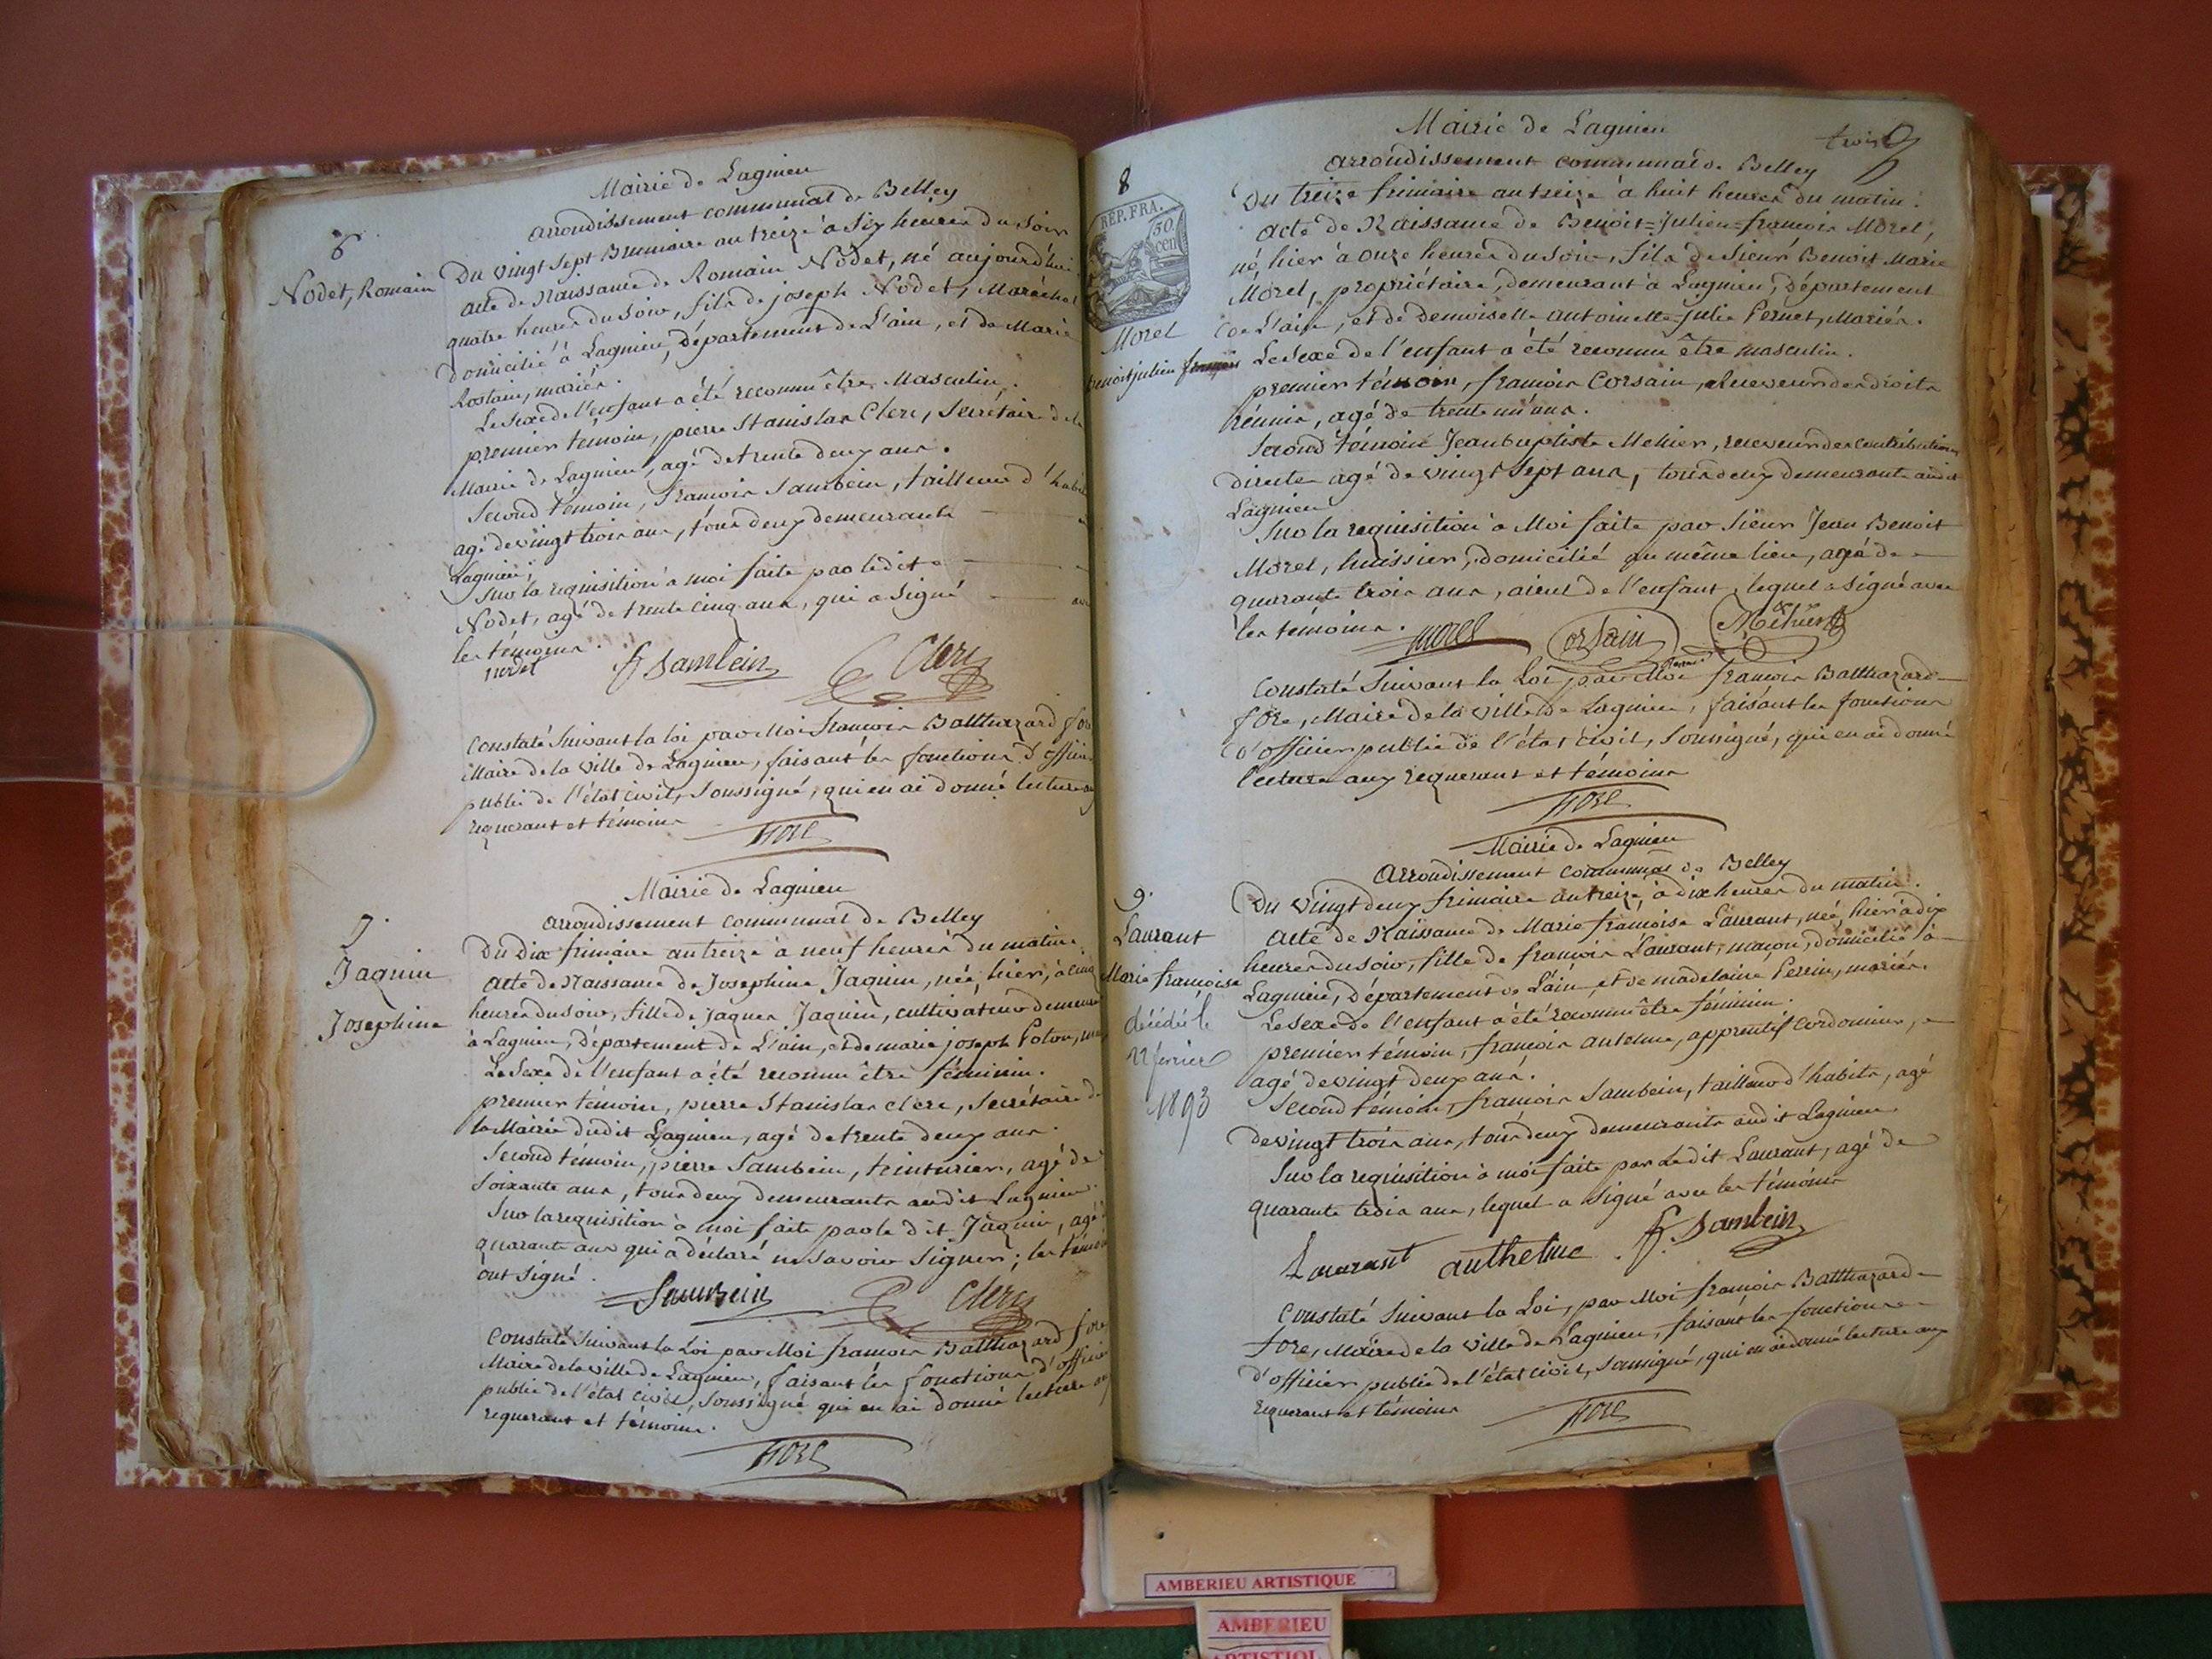 Mairie de Lagnieu
arrondissement communal de Belley
6
Nodet, Romain
Du vingt sept Brumaire an treize à Six heures du Soir
acte de Naissance de Romain Nodet, né aujourd'hui
quatre heures du Soir, fils de joseph Nodet, Maréchal
domicilié à Lagnieu, département de L'ain, et de Marie
Rostain, mariés.
Le Sexe de l'enfant a été reconnu être Masculin.
premier témoin, pierre Stanislas Clerc, Secrétaire de la
Mairie de Lagnieu, agé de trente deux ans.
Second témoin, françois Sambein, tailleur d'habits
agé de vingt trois ans, tous deux demeurants
Lagnieu;
Sur la requisition à moi faite par ledit
Nodet, agé de trente cinq ans, qui a Signé avec
les témoins.
nodet fr Sambein Clerc
Constaté Suivant la loi par Moi françois Balthazard fore
Maire de la ville de Lagnieu, faisant les fonctions d'officier
public de l'état civil, Soussigné, qui en ai donné lecture aux
requerant et témoins
fore
Mairie de Lagnieu
arrondissement communal de Belley
7.
Jaquin
Josephine
Du Dix frimaire an treize à neuf heures du matin
acte de Naissance de Josephine Jaquin, née, hier, à cinq
heures du Soir, fille de Jaques Jaquin, cultivateur demeurant
à Lagnieu, département de L'ain, et de marie joseph Poton,
Le Sexe de l'enfant a été reconnu être féminin.
premier témoin, pierre Stanislas clerc, Secrétaire de
la Mairie dudit Lagnieu, agé de trente deux ans.
Second témoin, pierre Sambein, teinturier, agé de
Soixante ans, tous deux demeurants audit Lagnieu.
Sur la requisition à moi faite par le dit Jaquin, agé
quarante ans qui a déclaré ne Savoir Signer; les témoins
ont Signé.
Sambein Clerc
Constaté Suivant la Loi par Moi françois Balthazard fore
Maire de la ville de Lagnieu, faisant les fonctions d'officier
public de l'état civil, Soussigné qui en ai donné lecture aux
requerant et témoins.
fore
trois
Mairie de Lagnieu
arrondissement communal de Belley
8
REP. FRA.
50
cen
Morel
benoit julien françois
Du treize frimaire an treize à huit heures du matin.
acte de Naissance de Benoit=Julien=françois Morel,
né, hier à onze heures du Soir, fils de Sieur Benoit Marie
Morel, propriétaire, demeurant à Lagnieu, département
de L'ain, et de demoiselle antoinette Julie Pernet, Mariés.
Le Sexe de l'enfant a été reconnu être masculin.
premier témoin, françois Corsain, Receveur des droits
réunis, agé de trente un ans.
Second témoin Jean baptiste Methier, receveur des contributions
directes agé de vingt Sept ans, tous deux demeurants audit
Lagnieu
Sur la requisition à Moi faite par Sieur Jean Benoit
Morel, huissier, domicilié au même lieu, agé de
quarante trois ans, aieul de l'enfant, lequel a Signé avec
les témoins.
morel Corsain Méthier
Constaté Suivant la Loi par Moi françois Balthazard
fore, Maire de la ville de Lagnieu, faisant les fonctions
d'officier public de l'état civil, Soussigné, qui en ai donné
lecture aux requerant et témoins
fore
Mairie de Lagnieu
arrondissement communal de Belley
9.
Laurant
Marie françoise
décédée le
22 février
1893
Du vingt deux frimaire an treize, à dix heures du matin.
acte de Naissance de Marie françoise Laurant, née, hier à dix
heures du Soir, fille de françois Laurant, maçon, domicilié à
Lagnieu, département de L'ain, et de madelaine Perrin, mariés.
Le Sexe de l'enfant a été reconnu être féminin.
premier témoin, françois antelme, apprentif Cordonnier,
agé de vingt deux ans.
Second témoin, françois Sambein, tailleur d'habits, agé
de vingt trois ans, tous deux demeurants audit Lagnieu
Sur la requisition à moi faite par Le dit Laurant, agé de
quarante trois ans, lequel a Signé avec les témoins
Laurant anthelme fr Sambein
Constaté Suivant la Loi, par Moi françois Balthazard
fore, Maire de la ville de Lagnieu, faisant les fonctions
d'officier public de l'état civil, Soussigné, qui en ai donné lecture aux
requerant et témoins
fore
AMBERIEU ARTISTIQUE
AMBERIEU